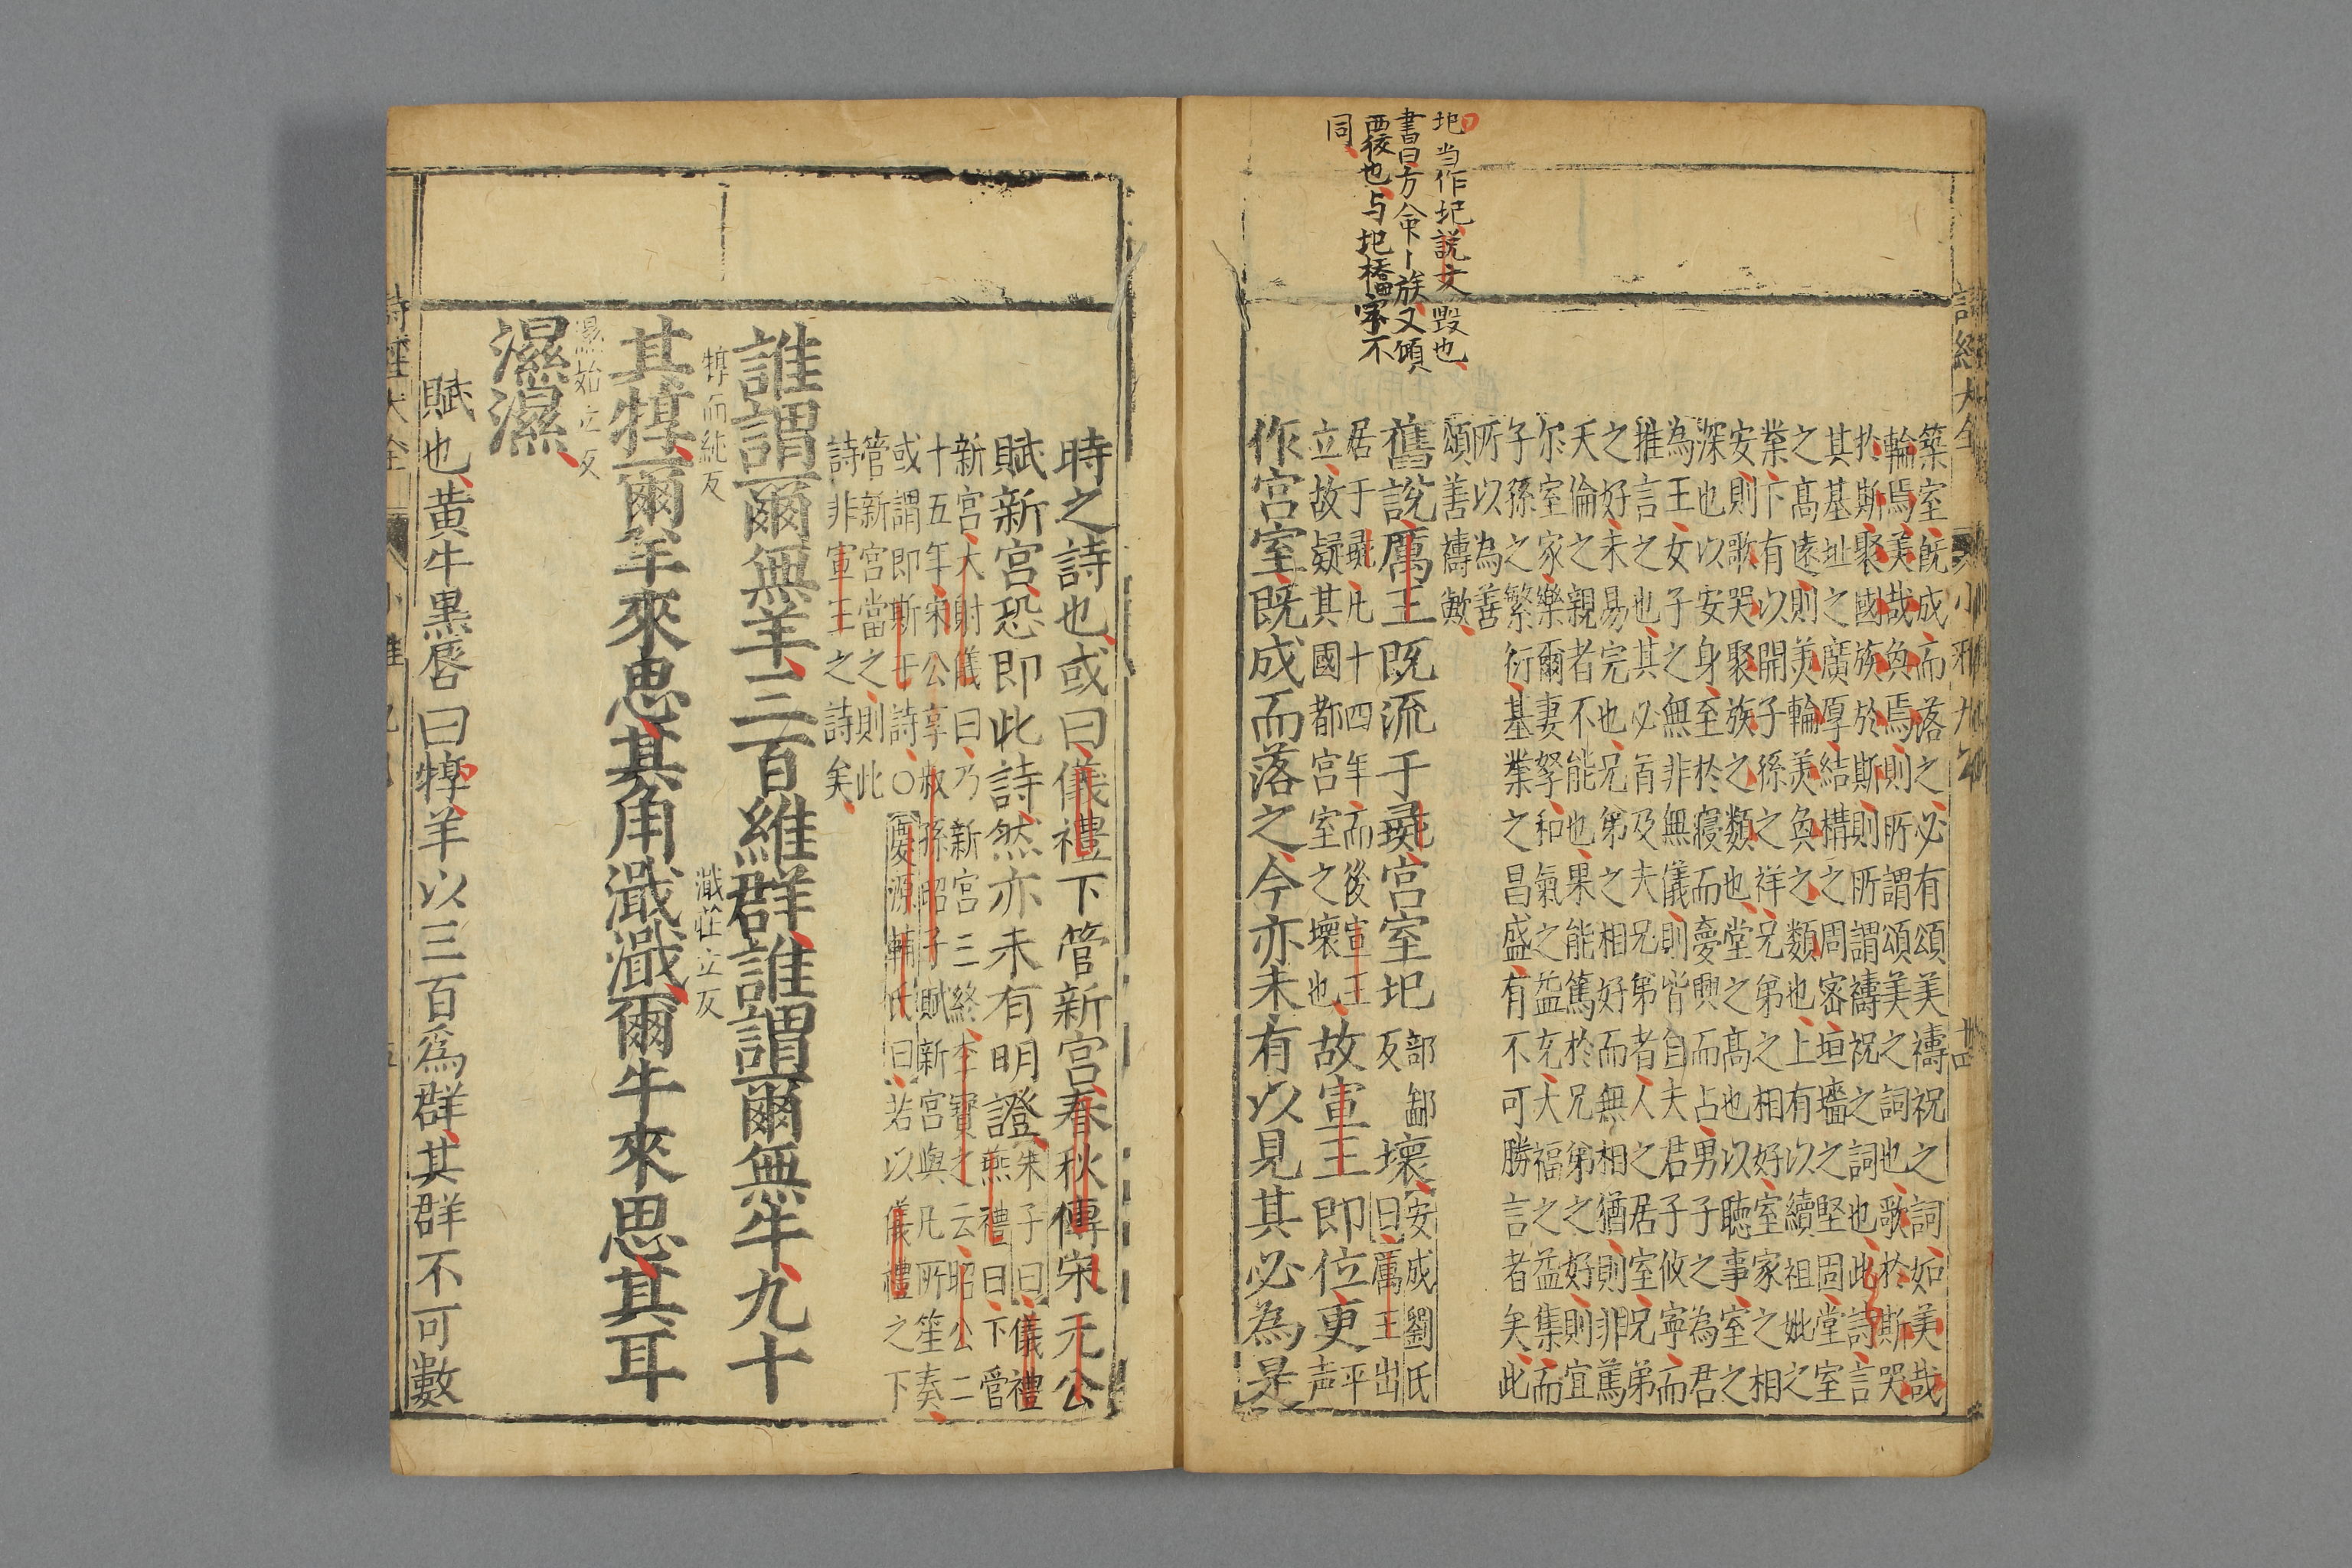 圯当作圮説文毀也
書曰方命丨族又傾
覆也与圯橋字不
同
詩經大全 小雅九 卄四
築室既成而落之必有頌美禱祝之詞如美哉
輪焉美哉奐焉則所謂頌美之詞也歌於斯哭
於斯聚國族於斯則所謂禱祝之詞也此詩言
其基址之廣厚結構之周密垣墻之堅固堂室
之高遠則美輪美奐之類也上有以續祖妣之
業下有以開子孫之祥兄弟之相好室家之相
安則歌哭聚族之類也堂之高也以聽事室之
深也以安身至於寢而夢興而占男子之為君
為王女子之無非無儀則皆自夫君子攸寧而
推言之也其必首及夫兄弟者人之居室兄弟
之好未易完也兄弟之相好而無相猶則非篤
天倫之親者不能也果能篤於兄弟之好則宜
尔室家樂爾妻孥和氣之益充大福之益集而
子孫之繁衍基業之昌盛有不可勝言者矣此
所以為善
頌善禱歟
舊說厲王既流于彘宮室圮部鄙反壞安成劉氏曰厲王出
居于彘凡十四年而後宣王
立故疑其國都宮室之壞也故宣王即位更平声
作宮室既成而落之今亦未有以見其必為是
時之詩也或曰儀禮下管新宮春秋傳宋元公
賦新宮恐即此詩然亦未有明證朱子曰儀禮燕禮曰下管
新宮大射儀曰乃新宮三終李寶之云昭公二
十五年宋公享叔孫昭子賦新宮與凡所笙奏
或謂即斯于詩○慶源輔氏曰若以儀禮之下
管新宮當之則此
詩非宣王之詩矣
誰謂爾無羊三百維群誰謂爾無牛九十
犉而純反
其犉爾羊來思其角濈濈爾牛來思其耳
濈莊立反
濕始立反
濕濕
賦也黃牛黑唇曰犉羊以三百爲群其群不可數
詩經大全 小雅